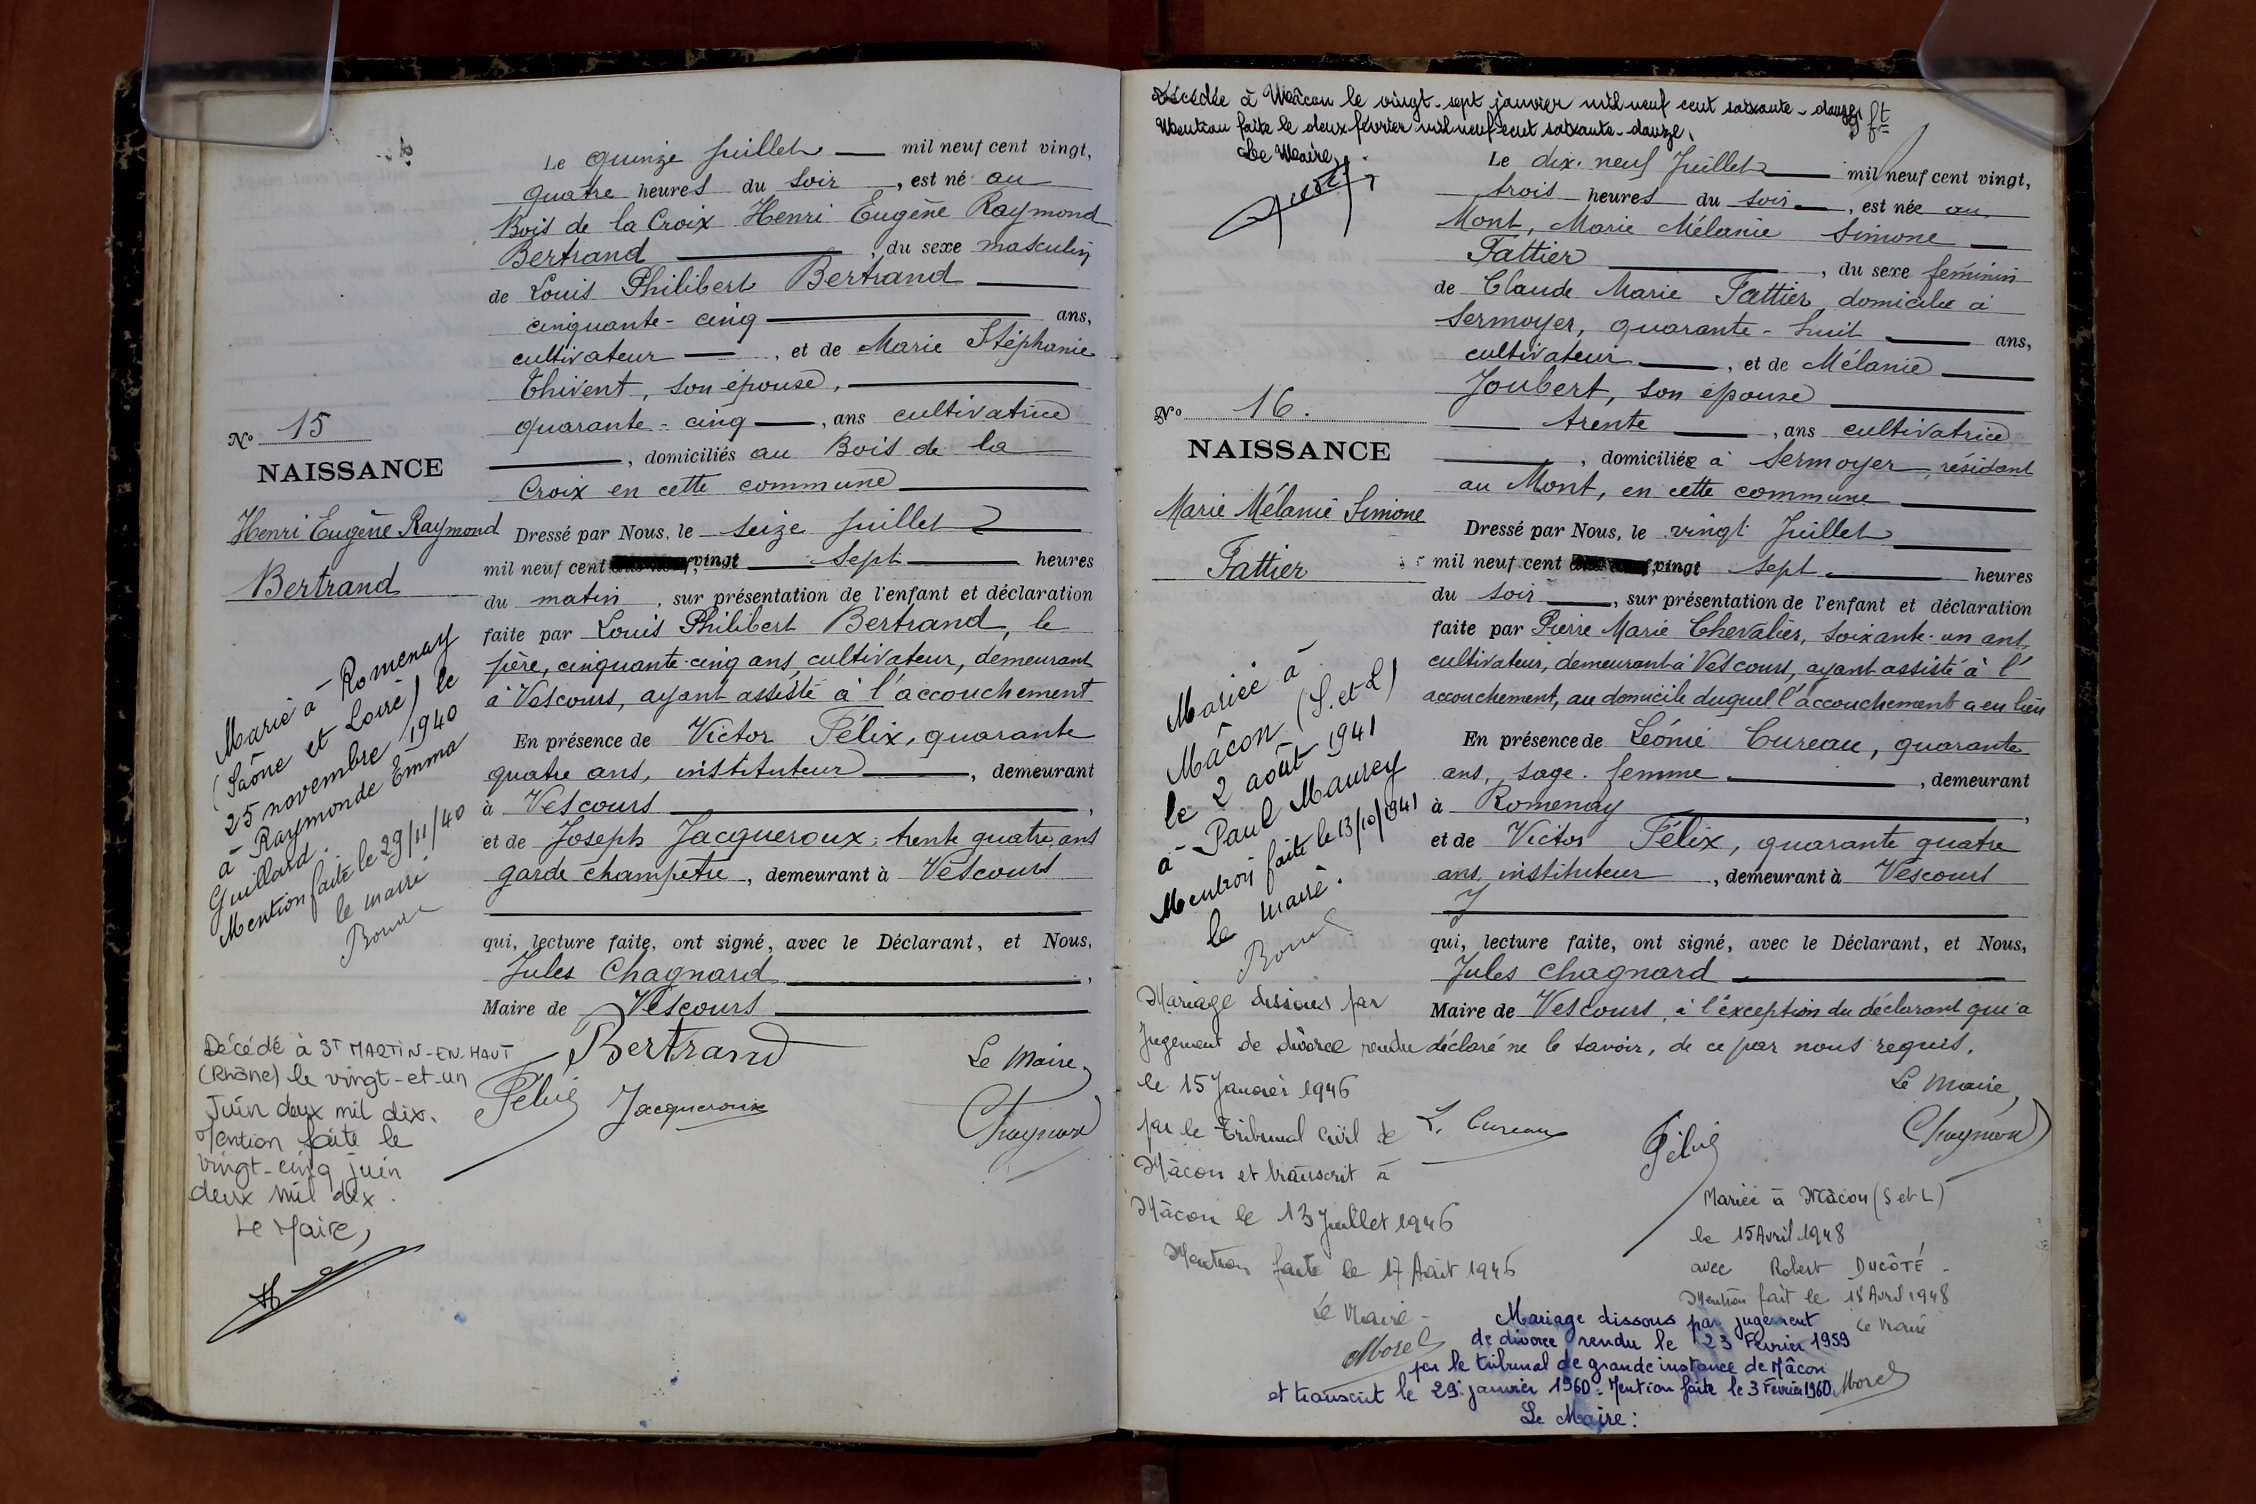 Le quinze Juillet mil neuf cent vingt,
quatre heures du soir, est né au
Bois de la Croix Henri Eugène Raymond
Bertrand, du sexe masculin
de Louis Philibert Bertrand
cinquante-cinq ans,
cultivateur, et de Marie Stéphanie
Thivent, son épouse,
quarante-cinq, ans cultivatrice
, domiciliés au Bois de la
Croix en cette commune
Nº 15
NAISSANCE
Henri Eugène Raymond
Bertrand
Dressé par Nous, le seize Juillet
mil neuf cent vingt sept heures
du matin, sur présentation de l'enfant et déclaration
faite par Louis Philibert Bertrand, le
père, cinquante-cinq ans, cultivateur, demeurant
à Vescours, ayant assisté à l'accouchement
En présence de Victor Félix, quarante
quatre ans, instituteur, demeurant
à Vescours,
et de Joseph Jacqueroux, trente quatre ans
garde champêtre, demeurant à Vescours
qui, lecture faite, ont signé, avec le Déclarant, et Nous,
Jules Chagnard,
Maire de Vescours
Bertrand
Le Maire,
Félix Jacqueroux Chagnard
Marié à Romenay
(Saône et Loire) le
25 novembre 1940
à Raymonde Emma
Guillard.
Mention faite le 29/11/40
le maire
Décédé à ST MARTIN-EN-HAUT
(Rhône) le vingt-et-un
Juin deux mil dix.
Mention faite le
vingt-cinq juin
deux mil dix.
Le Maire,
Décédée à Mâcon le vingt-sept janvier mil neuf cent soixante-douze
Mention faite le deux février mil neuf cent soixante-douze.
Le Maire,
Le dix-neuf Juillet mil neuf cent vingt,
trois heures du soir, est née au
Mont, Marie Mélanie Simone
Fattier, du sexe féminin
de Claude Marie Fattier, domicilié à
Sermoyer, quarante-huit ans,
cultivateur, et de Mélanie
Joubert, son épouse
trente, ans cultivatrice
, domiciliée à Sermoyer, résidant
au Mont, en cette commune
Nº 16.
NAISSANCE
Marie Mélanie Simone
Fattier
Dressé par Nous, le vingt Juillet
mil neuf cent vingt sept heures
du soir, sur présentation de l'enfant et déclaration
faite par Pierre Marie Chevalier, soixante-un ans,
cultivateur, demeurant à Vescours, ayant assisté à l'
accouchement, au domicile duquel l'accouchement a eu lieu
En présence de Léonie Cureau, quarante
ans, sage-femme, demeurant
à Romenay,
et de Victor Félix, quarante quatre
ans, instituteur, demeurant à Vescours
qui, lecture faite, ont signé, avec le Déclarant, et Nous,
Jules Chagnard
Maire de Vescours, à l'exception du déclarant qui a
déclaré ne le savoir, de ce par nous requis.
Le Maire,
L. Cureau Félix Chagnard
Mariée à
Mâcon (S. et L)
le 2 août 1941
à Paul Maurey
Mention faite le 13/10/1941
le maire.
Mariage dissous par
Jugement de divorce rendu
le 15 Janvier 1946
par le Tribunal Civil de
Mâcon et transcrit à
Mâcon le 13 Juillet 1946
Mention faite le 17 Août 1946
Le Maire
Morel
Mariée à Mâcon (S et L)
le 15 Avril 1948
avec Robert DUCÔTÉ
Mention fait le 18 Avril 1948
Le Maire
Mariage dissous par jugement
de divorce rendu le 23 Février 1959
par le tribunal de grande instance de Mâcon
et transcrit le 29 janvier 1960. Mention faite le 3 Février 1960. Morel
Le Maire: